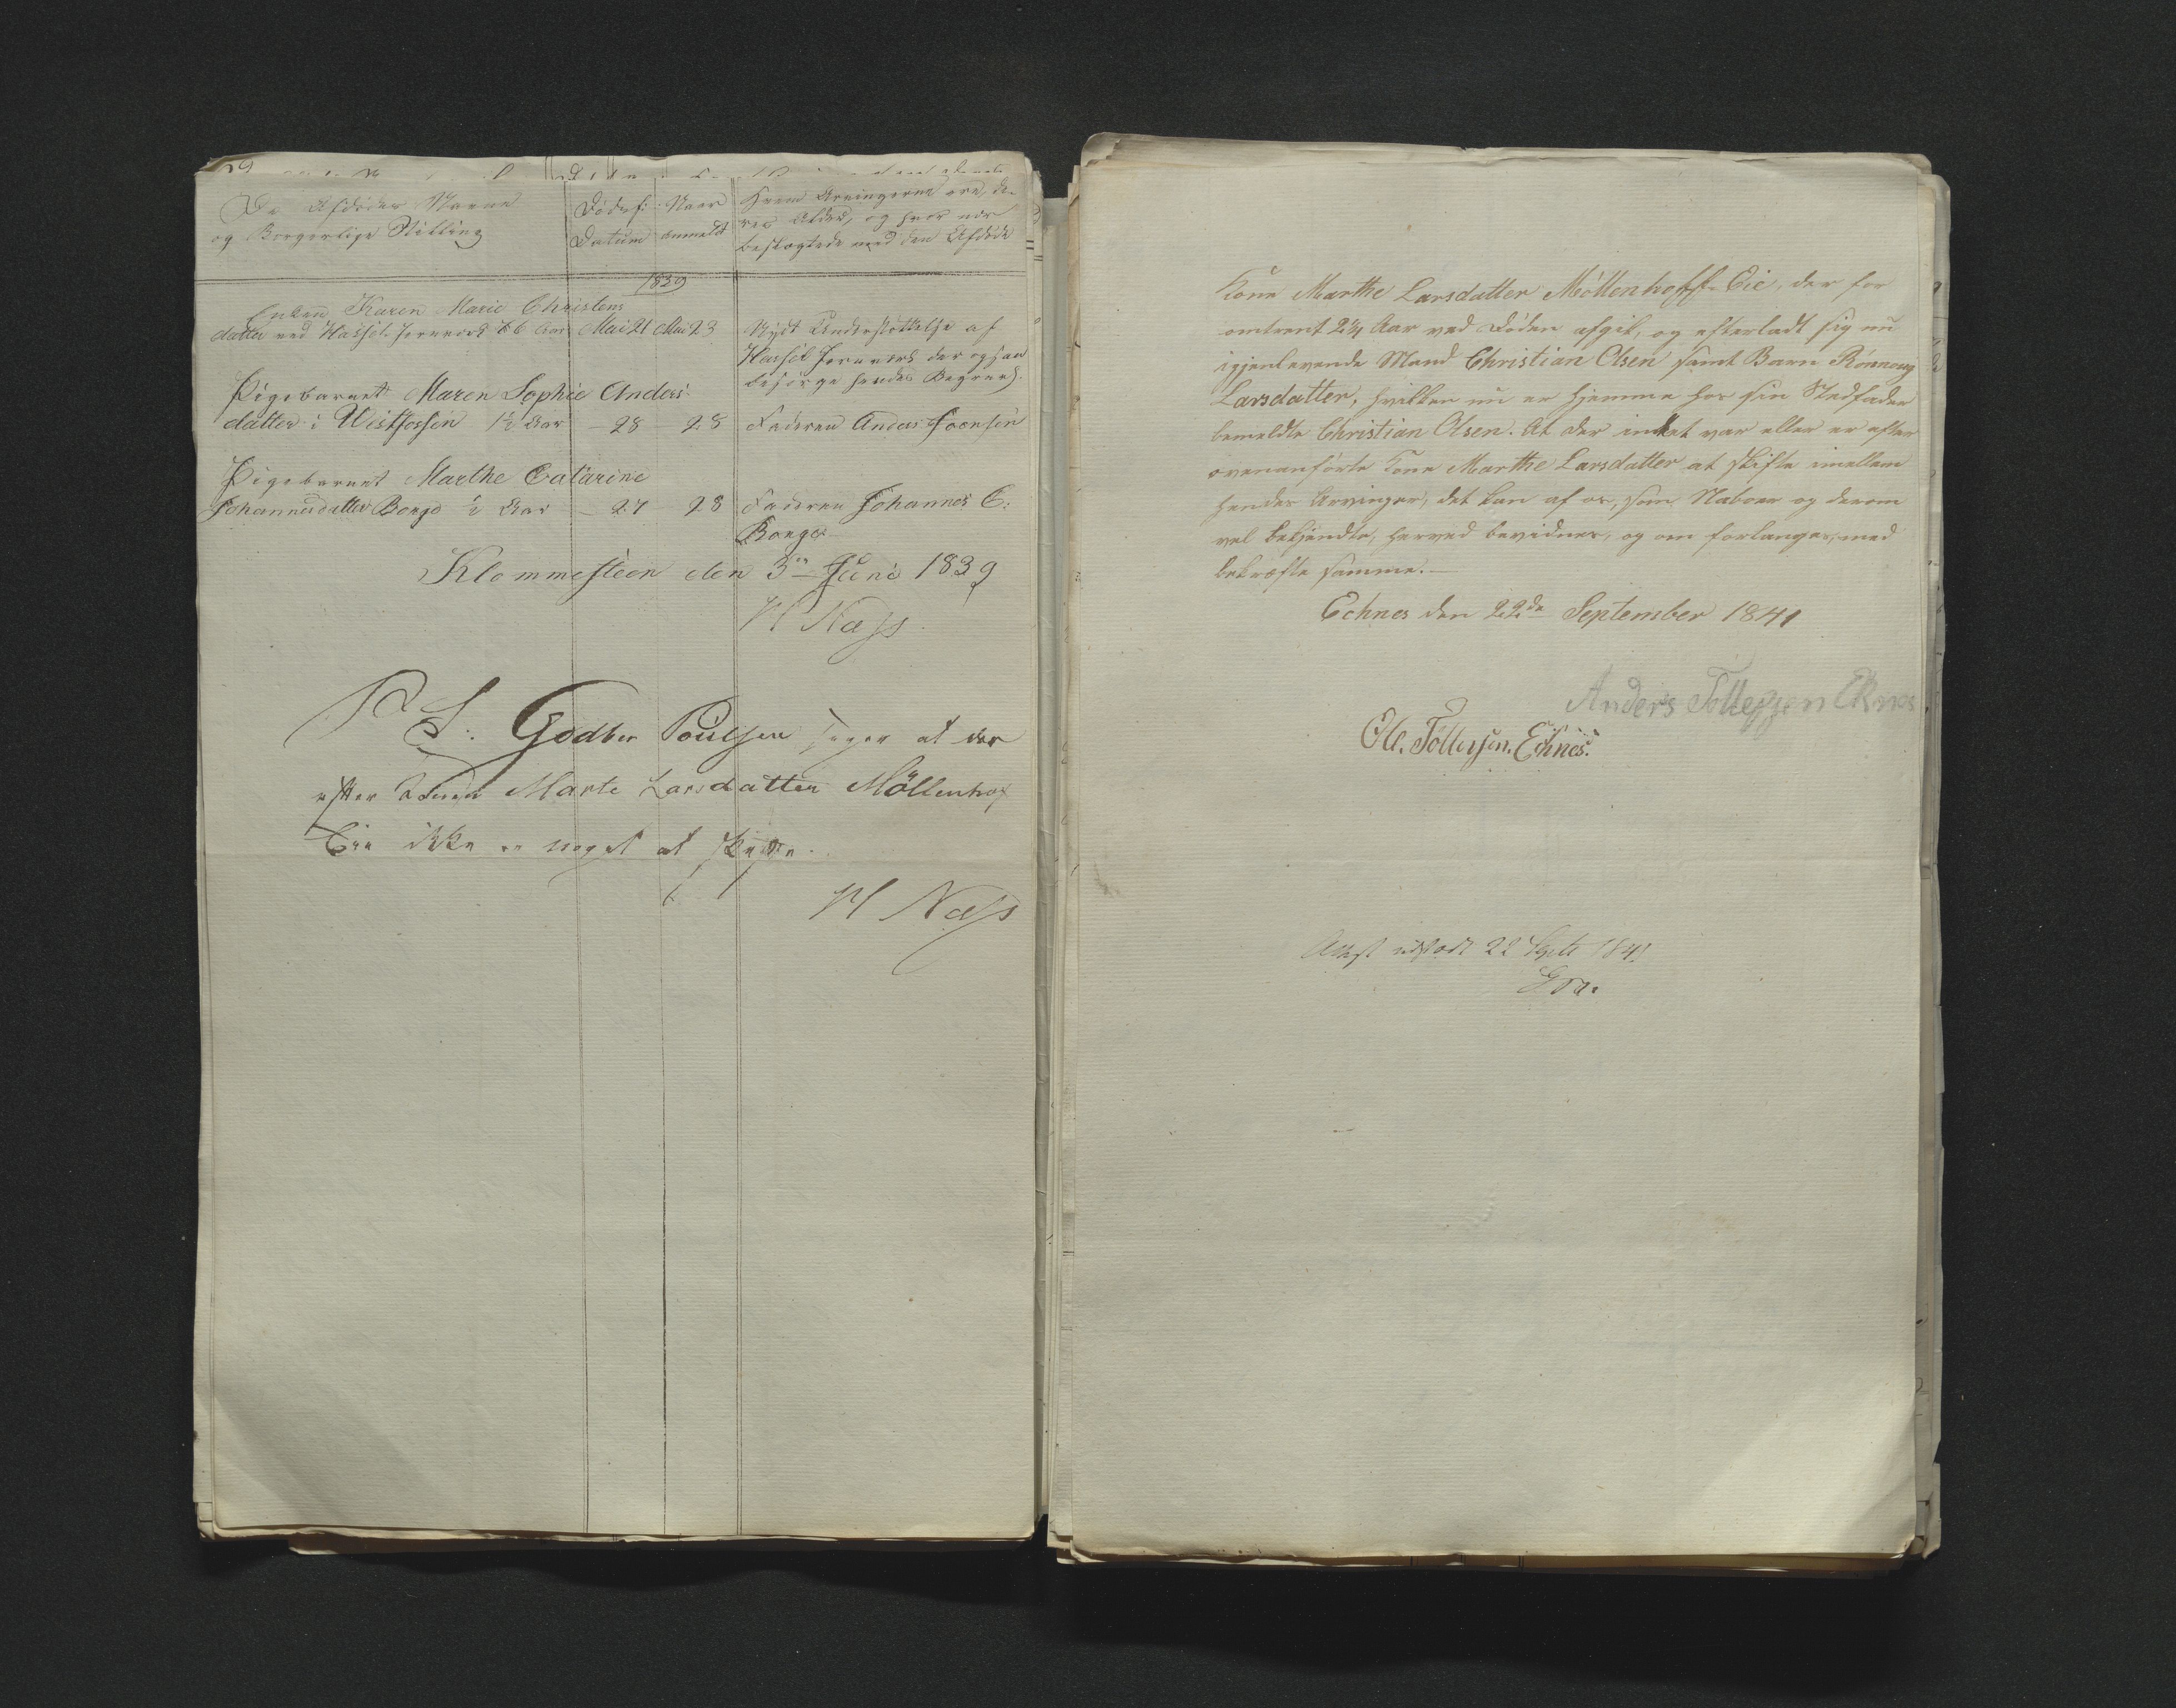 De Afdödes Navne
og Borgerlige Stilling
Dödsf:
Datum
Naar
anmeldt
Hvem Arvingerne ere, de-
res Alder, og hvor nær
beslægtede med den Afdöde
1839
Enken Karen Marie Christens
datter ved Hassel Jernverk 66 Aar Mai 21 Mai 23
Nydt Understöttelse af
Hassel Jernverk der ogsaa
besörge hendes Begravels.
Pigebarnet Maren Sophie Anders-
datter i Westfossen 1½ Aar - 28 28 Faderen Anders Joensen
Pigebarnet Marthe Catarine
Johannesdatter Bonge ½ Aar - 27 28 Faderen Johannes C:
Bonge
Klommesteen den 3n Juni 1839
N Næss
P S: Godber Poulsen siger at der
efter Konen Marte Larsdatter Möllenhof
Eie ikke er noget at skifte.
N Næss
Kone Marthe Larsdatter Möllenhoff-Eie, der for
omtrent 2¼ Aar ved Döden afgik, og efterladt sig nu
igjenlevende Mand Christian Olsen samt Barn Rönnoug
Larsdatter, hvilken nu er hjemme hos sin Stedfader
bemeldte Christian Olsen. At der intet var eller er efter
ovenanförte Kone Marthe Larsdatter at skifte imellem
hendes Arvinger, det kan af os, som Naboer og derom
vel bekjendte, herved bevidnes, og om forlanges, med
bekræfte samme.
Echnes den 22de September 1841
Anders Tollefsen Eknes
Ole Tollefsen Echnes
Attest udstædt 22 Septb 1841